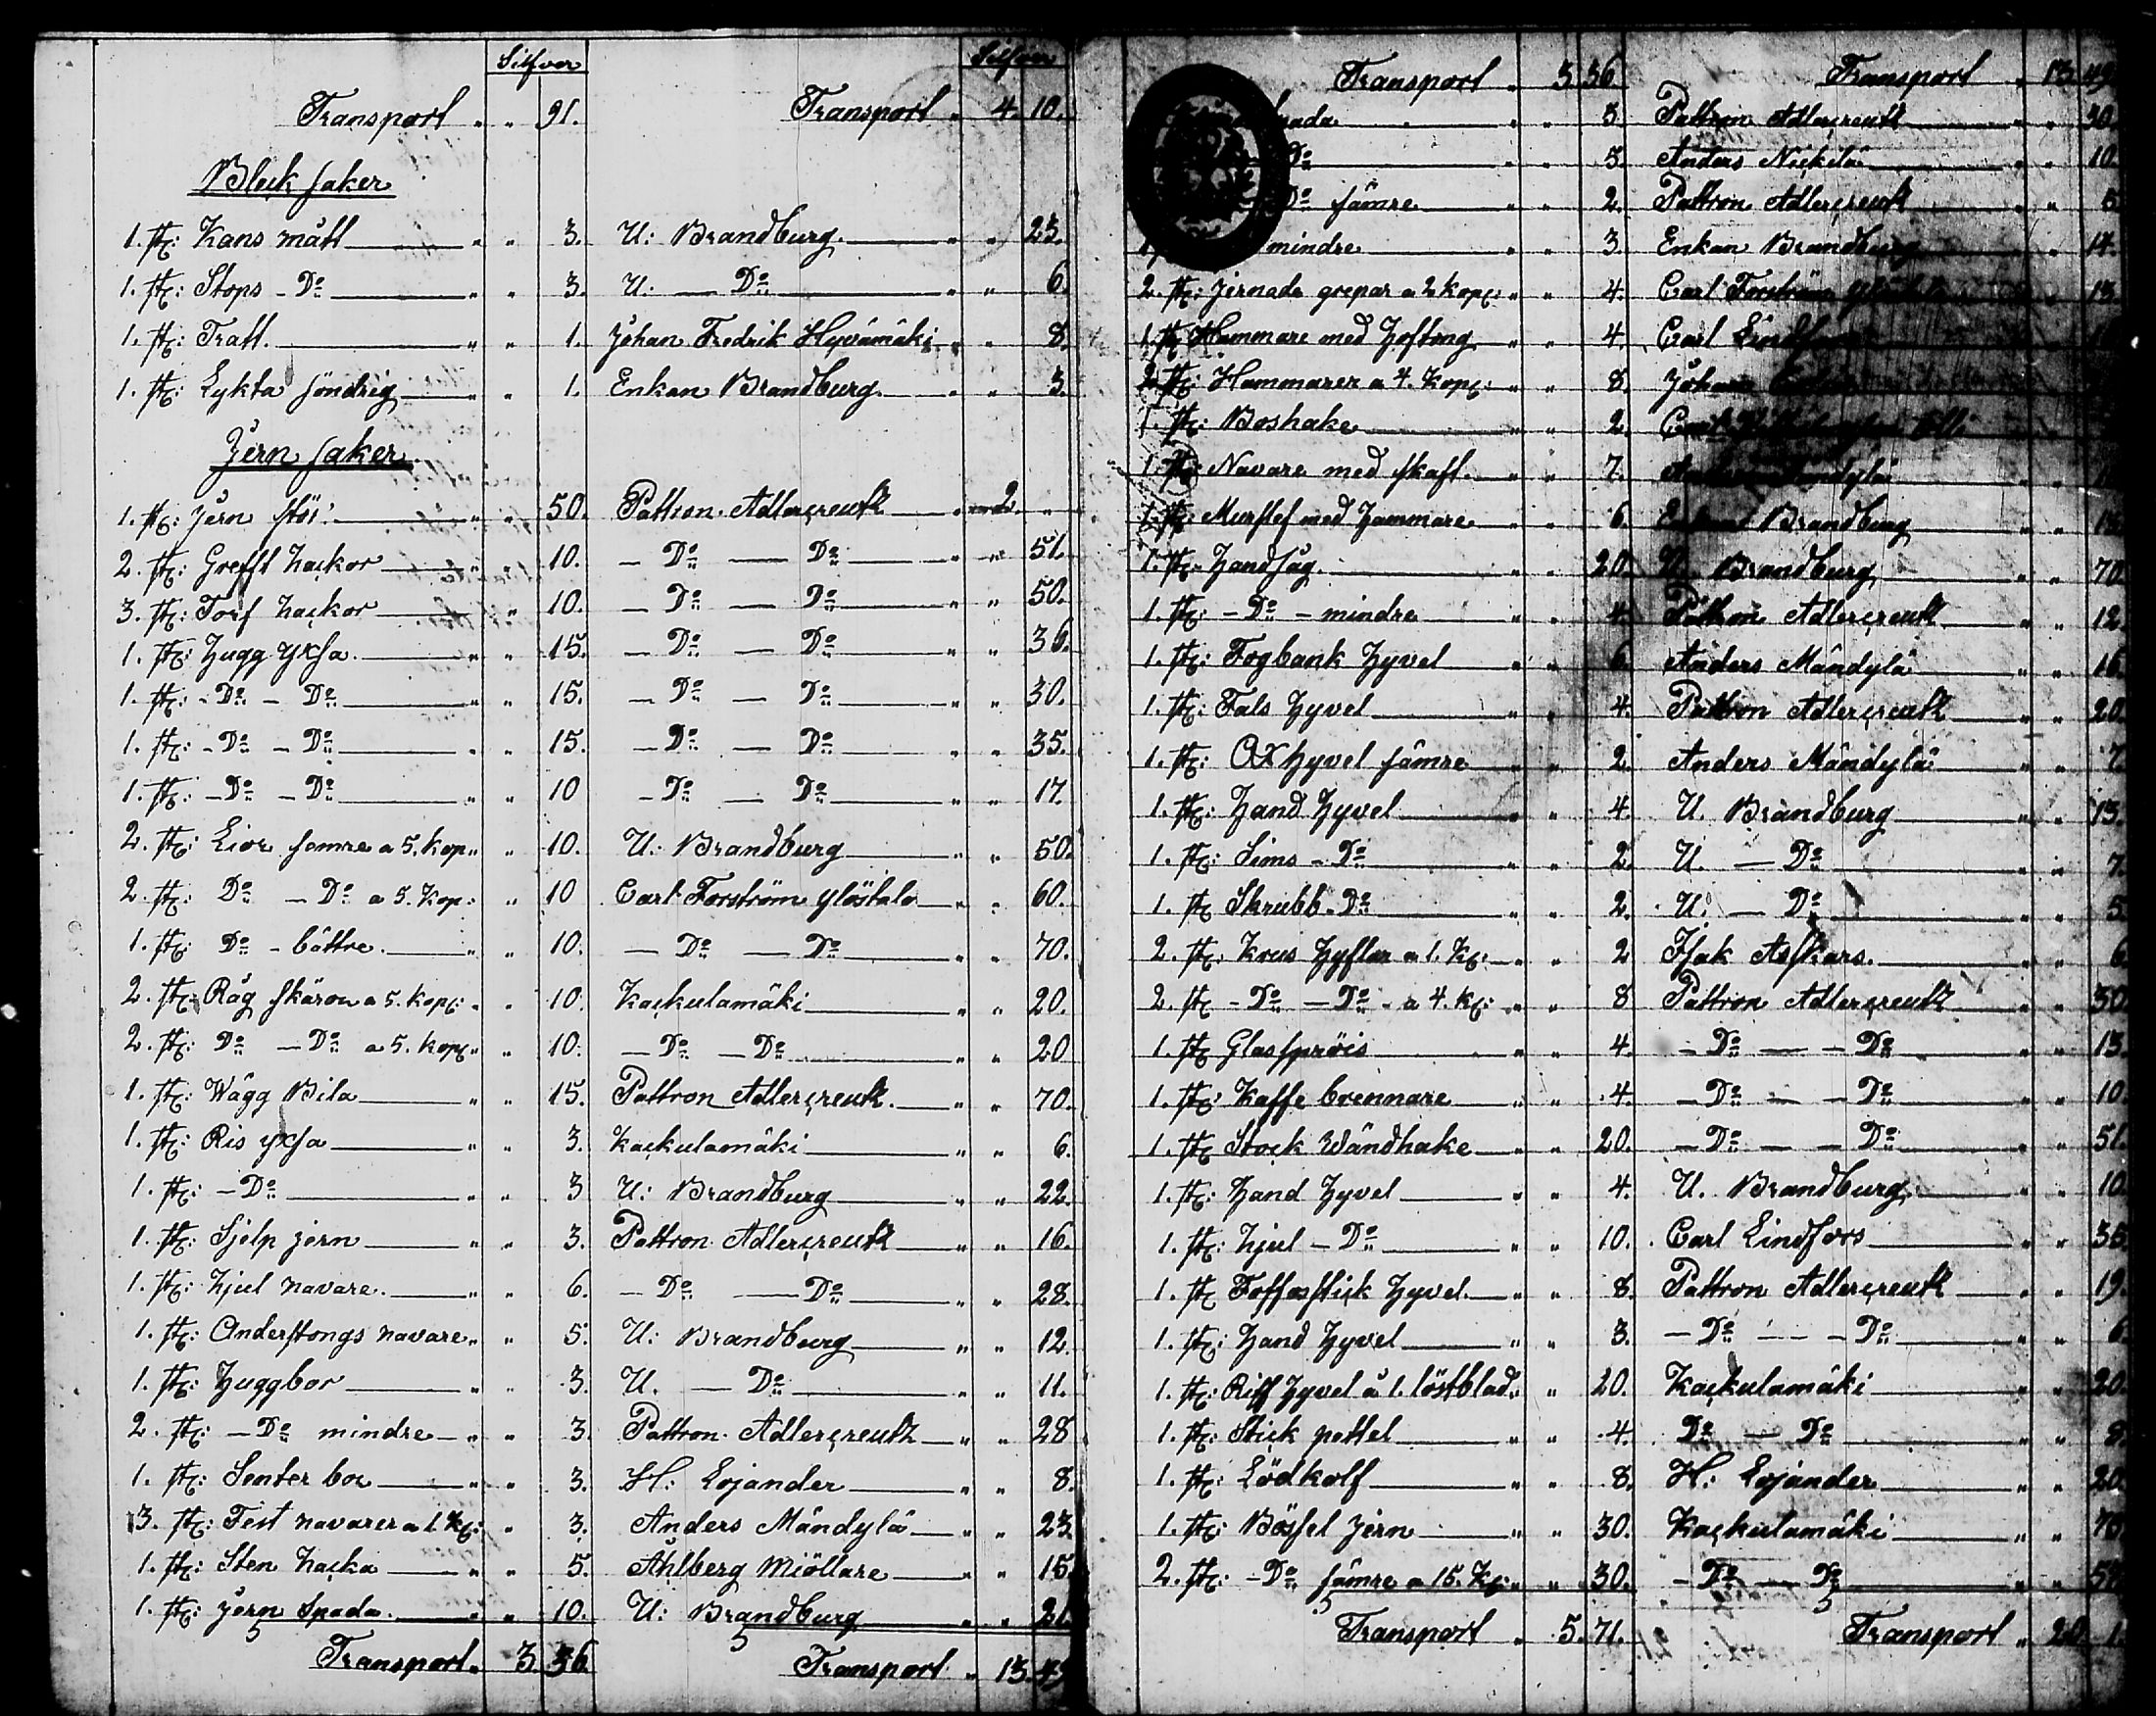 Silfver Silfver
Transport " " 91. Transport " 4. 10.
Bleck saker
1. st: Kans mått " " 3. U: Brandburg " " 23.
1. st: Stops - Do " " 3. U: — Do " " 6.
1. st: Tratt. " " 1. Johan Fredrik Hyvämäki " " 8.
1. st: Lykta söndrig " " 1. Enkan Brandburg " " 3.
Jern saker
1. st: Jern stör " " 50. Pattron Adlercreutz " 2. "
2. st: Grefft hackor " " 10. - Do — Do " " 51.
3. st: Torf hackor " " 10. - Do — Do " " 50.
1. st: Hugg yxsa " " 15. - Do — Do " " 36.
1. st: - Do - Do " " 15. - Do — Do " " 30.
1. st: - Do - Do " " 15. - Do — Do " " 35.
1. st: - Do - Do " " 10 - Do — Do " " 17.
2. st: Lior semre a 5. kop " " 10. U: Brandburg " " 50.
2. st: Do - Do a 5. kop: " 10 Carl Forström Ylöstalo " " 60.
1. st: Do - bättre " " 10. — Do — Do " " 70.
2. st: Råg skäror a 5. kop: " " 10. Kackulamäki " " 20.
2. st: Do - Do a 5. kop: " " 10. - Do - Do " " 20
1. st: Wägg Bila " " 15. Pattron Adlercreutz " " 70.
1. st: Ris yxsa " " 3. Kackulamäki " " 6.
1. st: - Do " " 3 U: Brandburg " " 22.
1. st: Sjelp jern " " 3. Pattron Adlercreutz " " 16.
1. st: Hjul navare " " 6. - Do — Do " " 28.
1. st: Anderstongs navare " " 5. U: Brandburg " " 12.
1. st: Huggbor " " 3. U. — Do " " 11.
2. st: - Do mindre " " 3. Pattron Adlercreutz " " 28
1. st: Senter bor " " 3. H: Lojander " " 8.
3. st: Fest navarer a 1 K: " 3. Anders Mändylä " " 23
1. st: Sten hacka " " 5. Åhlberg Miöllare " " 15
1. st: Jern Spada " " 10. U: Brandburg " " 21.
Transport " 3. 36 Transport " 13. 49
Transport " 3. 36. Transport " 13. 49
" " 3. Pattron Adlercreutz " " 30.
Do " " 3. Anders Nickilä " " 10.
Do sämre " " 2. Pattron Adlercreutz " " 5.
mindre " " 3. Enkan Brandburg " " 14.
2. st: Jernade grepar a 2 kop: " " 4. Carl Forström " " 13.
1. st: Hammare med Hoftong " " 4. Carl Lindfors
2. st: Hammarer a 4. kop: " " 8. Johan
1. st: Boshake " " 2.
1. st: Navare med skaft " " 7. Anders Mändylä
1. st: Murslef med Hammare " " 6. Enkan Brandburg
1. st: Handsåg " " 20. U. Brandburg " " 70.
1. st: - Do - mindre " " 4. Pattron Adlercreutz " " 12.
1. st: Fogbank Hyvel " " 6. Anders Mändylä " " 16.
1. st: Fals Hyvel " " 4. Pattron Adlercreutz " " 20.
1. st: Ox hyvel sämre " " 2. Anders Mändylä " " 7.
1. st: Hand Hyvel " " 4. U. Brandburg " " 13.
1. st: Sims - Do " " 2. U. — Do " " 7.
1. st: Skrubb - Do " " 2. U. — Do " " 5.
2. st: Krus Hyflar a 1. K: " " 2 Isak Asskars " " 6.
2. st: - Do — Do - a 4. K: " " 8 Pattron Adlercreutz " " 30
1. st: Glasspröis " " 4. - Do — - Do " " 13.
1. st: Kaffe brennare " " 4. - Do — - Do " " 10
1. st: Stock Wändhake " " 20. - Do — - Do " " 51.
1. st: Hand Hyvel " " 4. U. Brandburg " " 10.
1. st: Hjul - Do " " 10. Carl Lindfors " " 35.
1. st: Hyvel " " 8. Pattron Adlercreutz " " 19.
1. st: Hand Hyvel " " 3. - Do — - Do " " 6.
1. st: Riff Hyvel å 1. löstblad " " 20. Kackulamäki " " 20.
1. st: Stick pettel " " 4. Do — Do " " 8.
1. st: Lödkolf " " 8. H: Lojander " " 20.
1. st: Bössel Jern " " 30. Kackulamäki " " 70.
2. st: - Do sämre a 15. K: " " 30. - Do — Do " "
Transport " 5. 71. Transport " 20. 1.